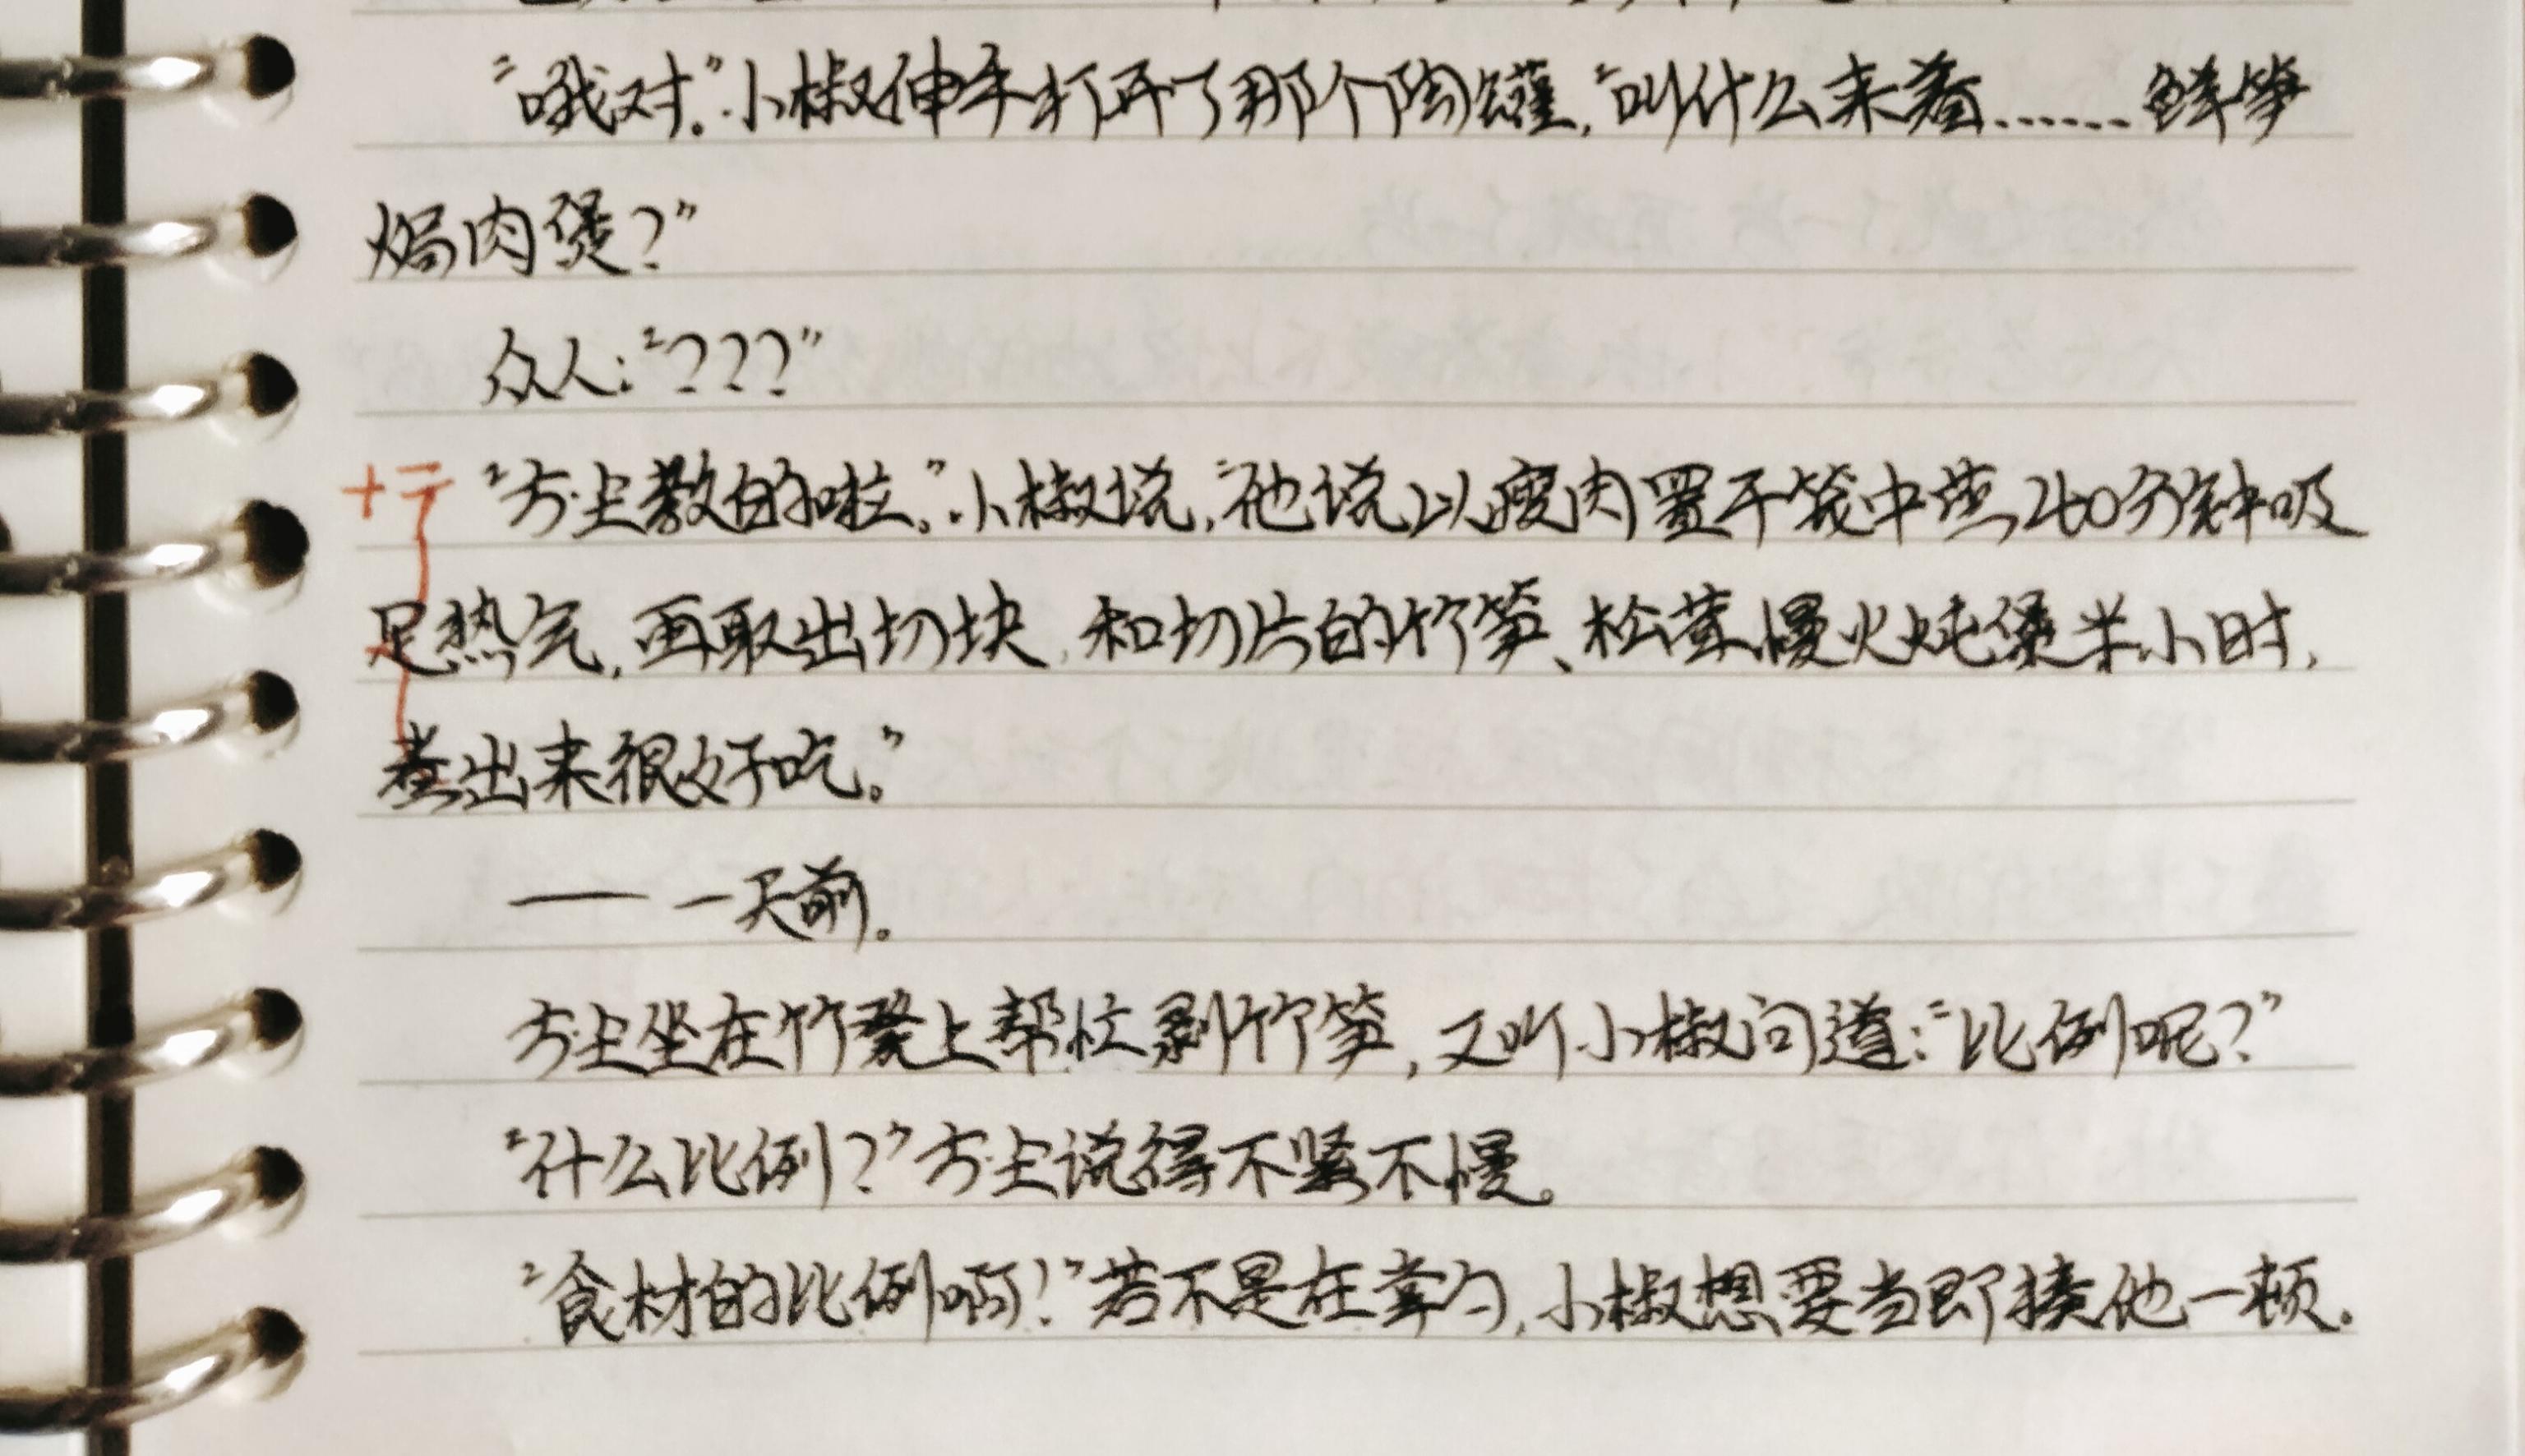 “哦对。”小椒伸手打开了那个陶罐，“叫什么来着……鲜笋
焗肉煲？”
众人：“？？？”
“方尘教的啦。”小椒说，“他说以瘦肉置于笼中蒸40分钟吸
足热气，再取出切块，和切片的竹笋、松茸慢火炖煲半小时，
煮出来很好吃。”
—— 一天前。
方尘坐在竹凳上帮忙剥竹笋，又听小椒问道：“比例呢？”
“什么比例？”方尘说得不紧不慢。
“食材的比例啊！”若不是在掌勺，小椒想要当即揍他一顿。